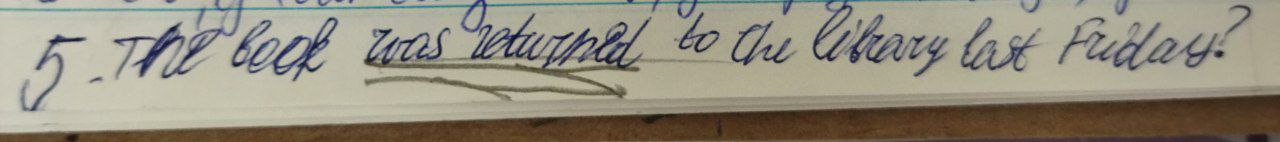 5. The book was returned to the library last Friday?